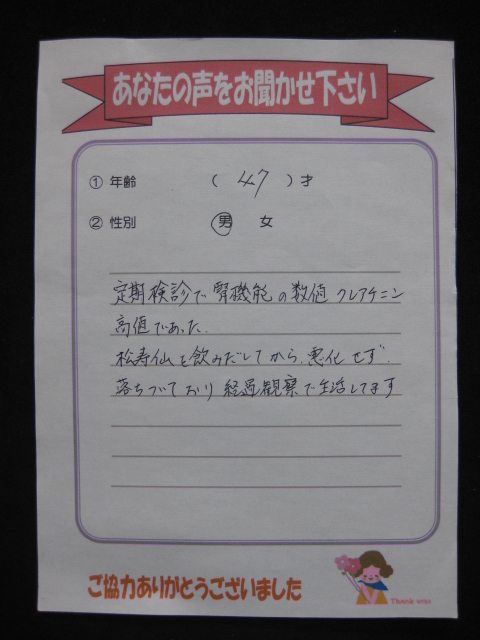 あなたの声をお聞かせ下さい
① 年齢 ( 47 ) 才
② 性別 男 女
定期検診で腎機能の数値 クレアチニン
高値であった.
松寿仙を飲みだしてから.悪化せず.
落ちついており 経過観察で生活してます
ご協力ありがとうございました
Thank you